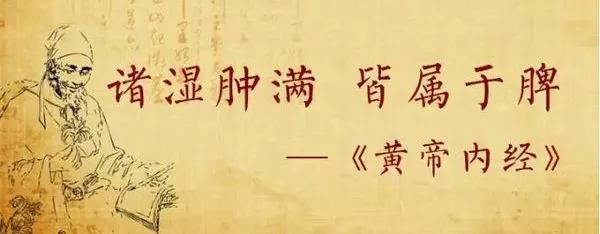 诸湿肿满 皆属于脾
—《黄帝内经》